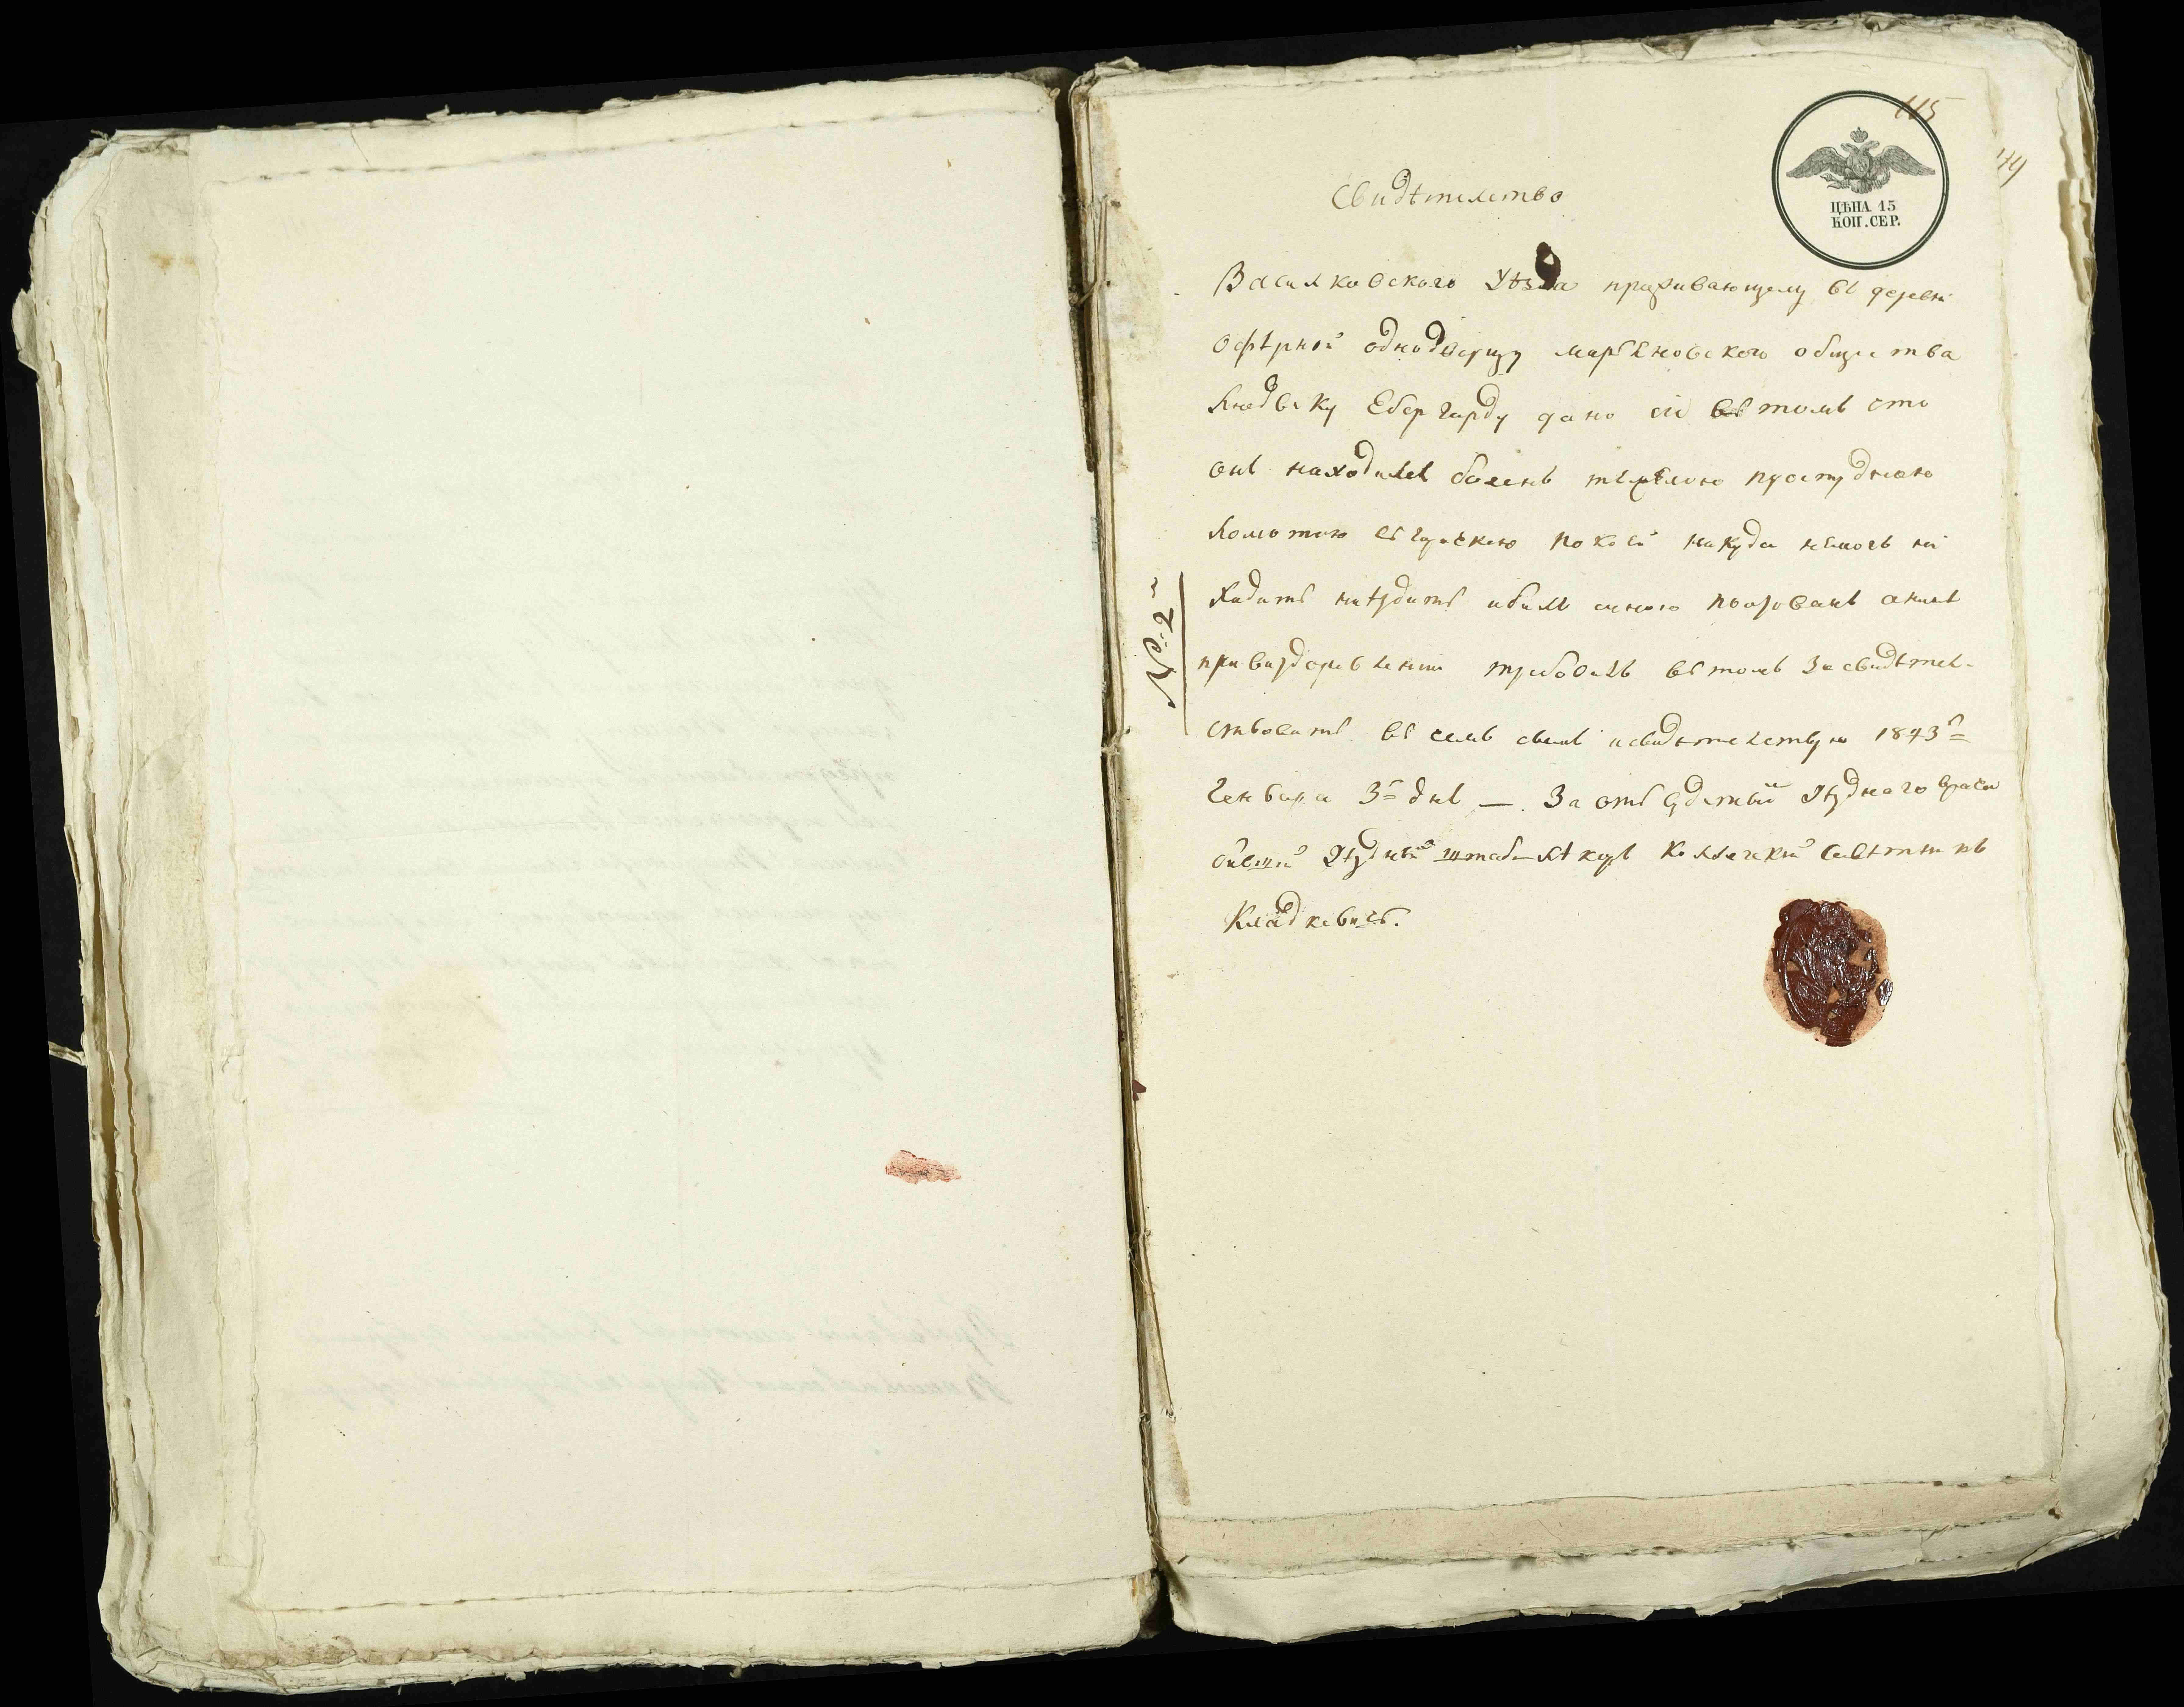 115
149
ЦѢНА 15
КОП. СЕР.
Свидѣтелство
Василковского Уѣзда проживающему въ деревнѣ
Офѣрной однодворцу Марьяновского общества
Людвику Ебергарду дано сіе въ томъ что
онъ находился боленъ тяжелою простудною
ломотою никуда немогъ ни
ходить ниѣздить ибилъ мною ползованъ
при виздоровленіи требовалъ въ томъ засвидѣтел-
ствовать въ семъ свидѣтелствую 1843=
Генваря 3= днѣ —. За отъ уѣзднаго врача
бившій Уѣздный штабъ-лѣкаръ Коллежскій Совѣтникъ
Кладкевичъ.
№ 2